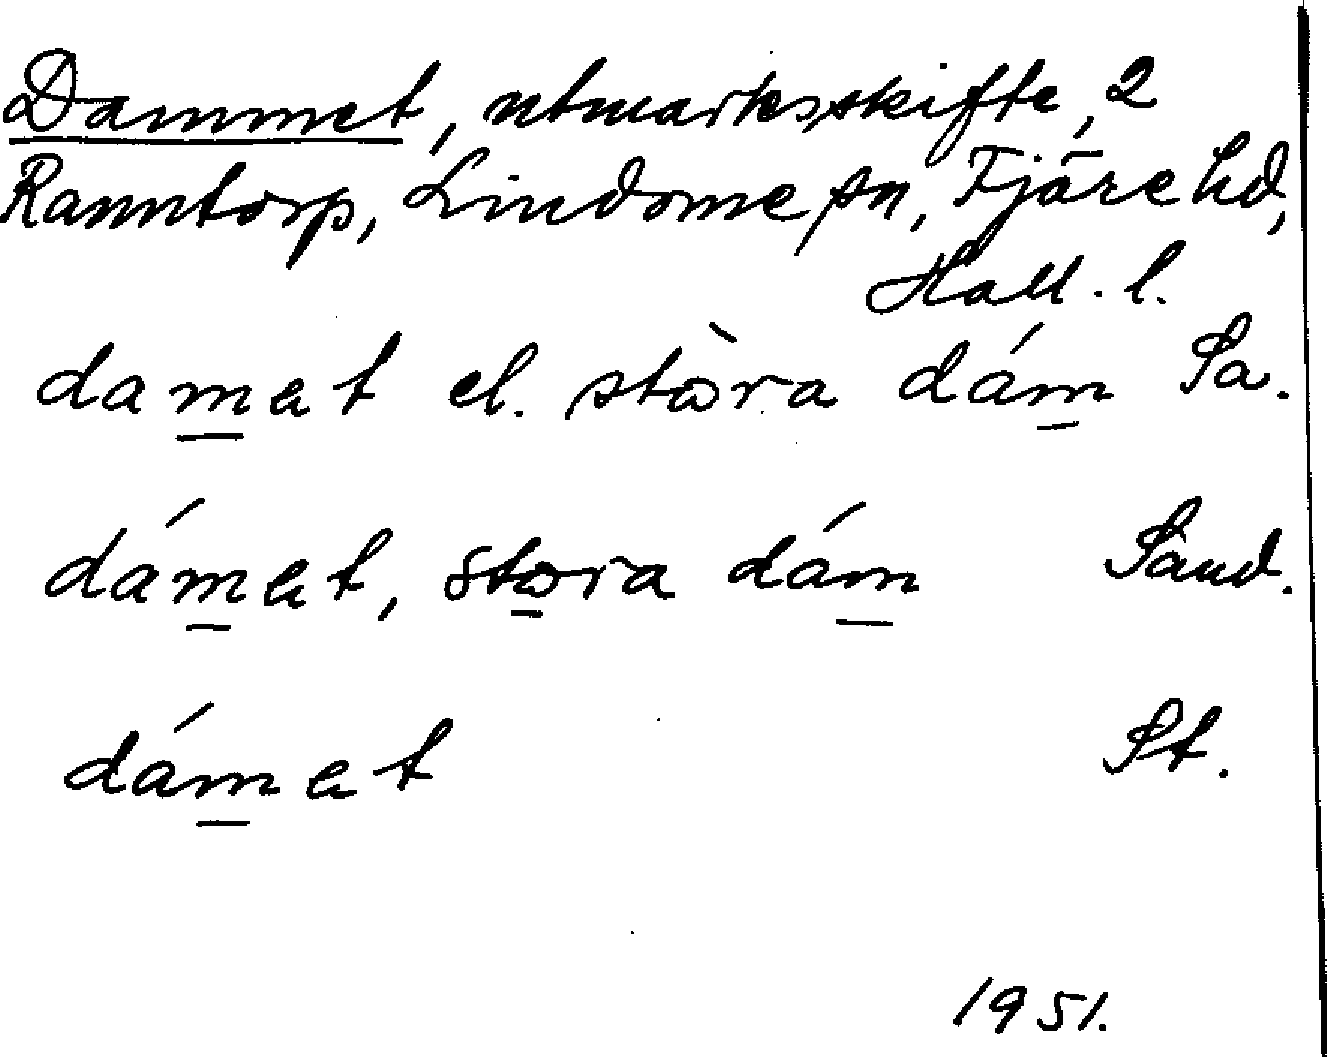 Dammet, utmarksskifte, 2
Ranntorp, Lindome sn, Fjäre hd,
Hall. l.
damat el. stòra dám Sa.
dámat, stora dám Sand.
dámat St.
1951.